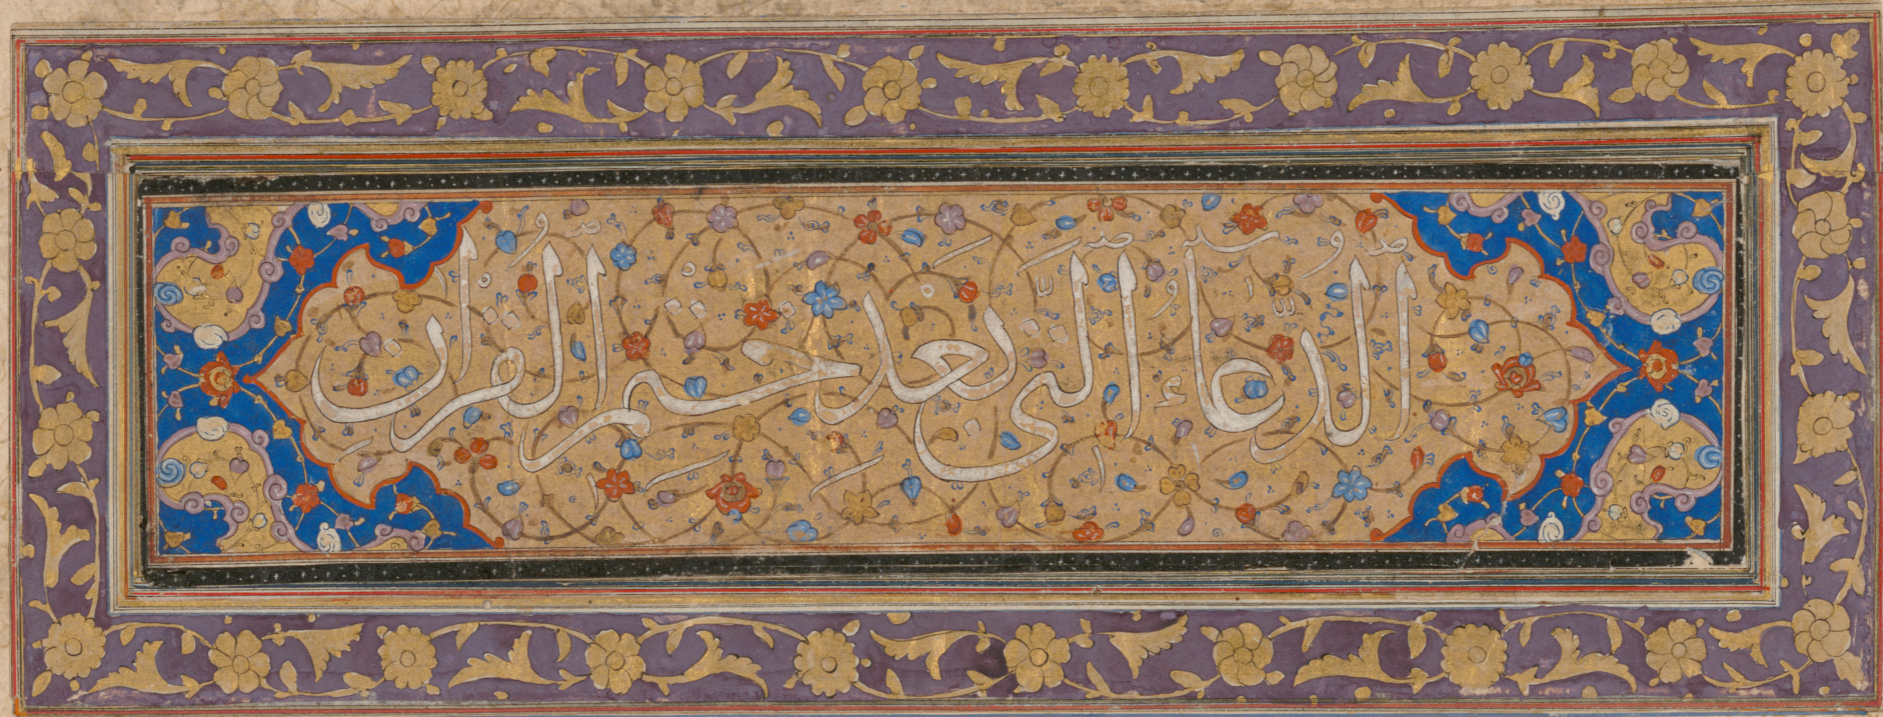 الدعاء التی بعد ختم القران